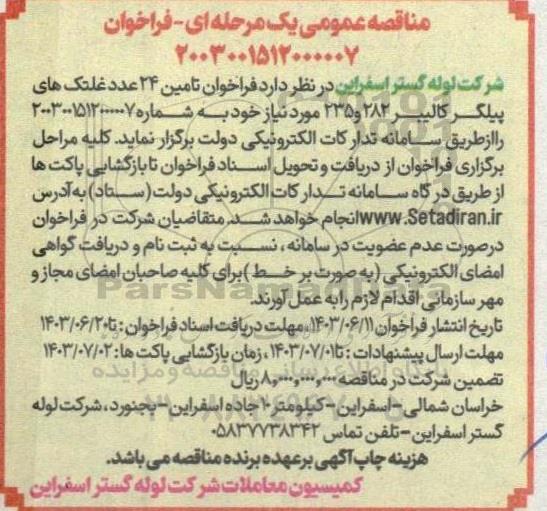 مناقصه عمومی یک مرحله ای - فراخوان
۲۰۰۳۰۰۱۵۱۲۰۰۰۰۰۷
شرکت لوله گستر اسفراین در نظر دارد فراخوان تامین ۲۴ عدد غلتک های
پیلگر کالیبر ۲۸۲ و ۲۳۵ مورد نیاز خود به شماره ۲۰۰۳۰۰۱۵۱۲۰۰۰۰۰۷
را از طریق سامانه تدارکات الکترونیکی دولت برگزار نماید. کلیه مراحل
برگزاری فراخوان از دریافت و تحویل اسناد فراخوان تا بازگشایی پاکت ها
از طریق درگاه سامانه تدارکات الکترونیکی دولت (ستاد) به آدرس
www.Setadiran.ir انجام خواهد شد. متقاضیان شرکت در فراخوان
درصورت عدم عضویت در سامانه، نسبت به ثبت نام و دریافت گواهی
امضای الکترونیکی (به صورت بر خط) برای کلیه صاحبان امضای مجاز و
مهر سازمانی اقدام لازم را به عمل آورند.
ParsNamadData
تاریخ انتشار فراخوان ۱۴۰۳/۰۶/۱۱، مهلت دریافت اسناد فراخوان: تا ۱۴۰۳/۰۶/۲۰
مهلت ارسال پیشنهادات: تا ۱۴۰۳/۰۷/۰۱، زمان بازگشایی پاکت ها: ۱۴۰۳/۰۷/۰۲
پایگاه اطلاع رسانی مناقصه و مزایده
تضمین شرکت در مناقصه ۸,۰۰۰,۰۰۰,۰۰۰ ریال
خراسان شمالی - اسفراین - کیلومتر ۲ جاده اسفراین - بجنورد، شرکت لوله
گستر اسفراین - تلفن تماس ۰۵۸۳۷۷۳۸۳۴۲
هزینه چاپ آگهی برعهده برنده مناقصه می باشد.
کمیسیون معاملات شرکت لوله گستر اسفراین